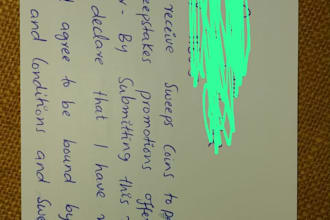 receive Sweeps Coins to
eepstakes promotions offe
By Submitting this
declare that I have
I agree to be bound by
and Conditions and Swe